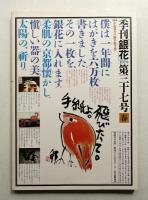 季刊「銀花」第三十七号 春
僕は一年間に
はがきを六万枚
書きました
その一枚を、
銀花に入れます。
柔肌の京都懐かし。
愼しい器の美。
太陽の、祈り。
手紙よ。
飛びたて。